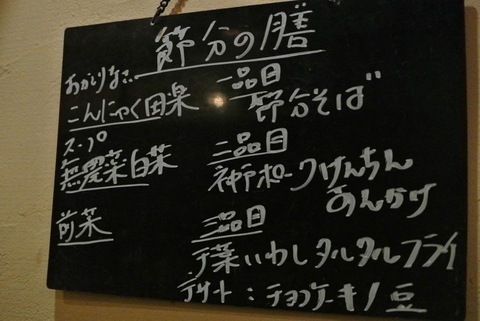 節分の膳
おかわりなさい
こんにゃく田楽
スープ
無農薬白菜
前菜
一品目
節分そば
二品目
神戸ポークけんちん
あんかけ
三品目
千葉いわしタルタルフライ
デザート:チョコケーキノ豆